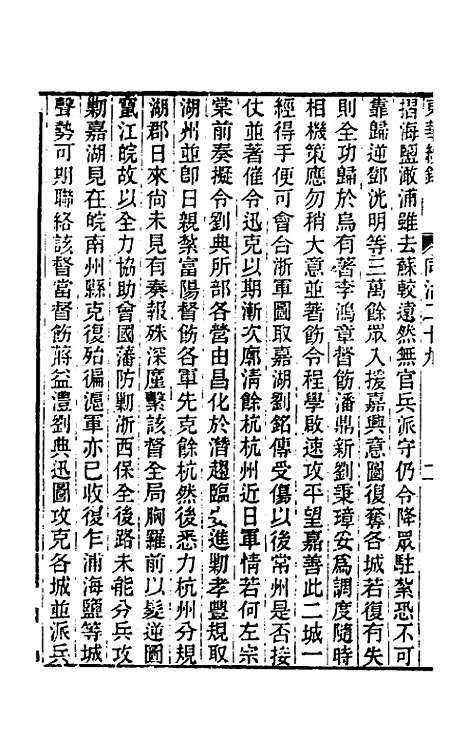 東華續錄 同治二十九 二
摺海鹽澉浦雖去蘇較遠然無官兵派守仍令降眾駐紮恐不可
靠歸逆鄧洸明等三萬餘眾入援嘉興意圖復奪各城若復有失
則全功歸於烏有著李鴻章督飭潘鼎新劉秉璋妥爲調度隨時
相機策應勿稍大意並著飭令程學啟速攻平望嘉善此二城一
經得手便可會合浙軍圖取嘉湖劉銘傳受傷以後常州是否接
仗並著催令迅克以期漸次廓清餘杭杭州近日軍情若何左宗
棠前奏擬令劉典所部各營由昌化於潛趨臨安進勦孝豐規取
湖州並卽日親紮富陽督飭各軍先克餘杭然後悉力杭州分規
湖郡日來尚未見有奏報殊深廑繫該督全局胸羅前以髮逆圖
竄江皖故以全力協助曾國藩防勦浙西保全後路未能分兵攻
勦嘉湖見在皖南州縣克復殆徧滬軍亦已收復乍浦海鹽等城
聲勢可期聯絡該督當督飭蔣益澧劉典迅圖攻克各城並派兵